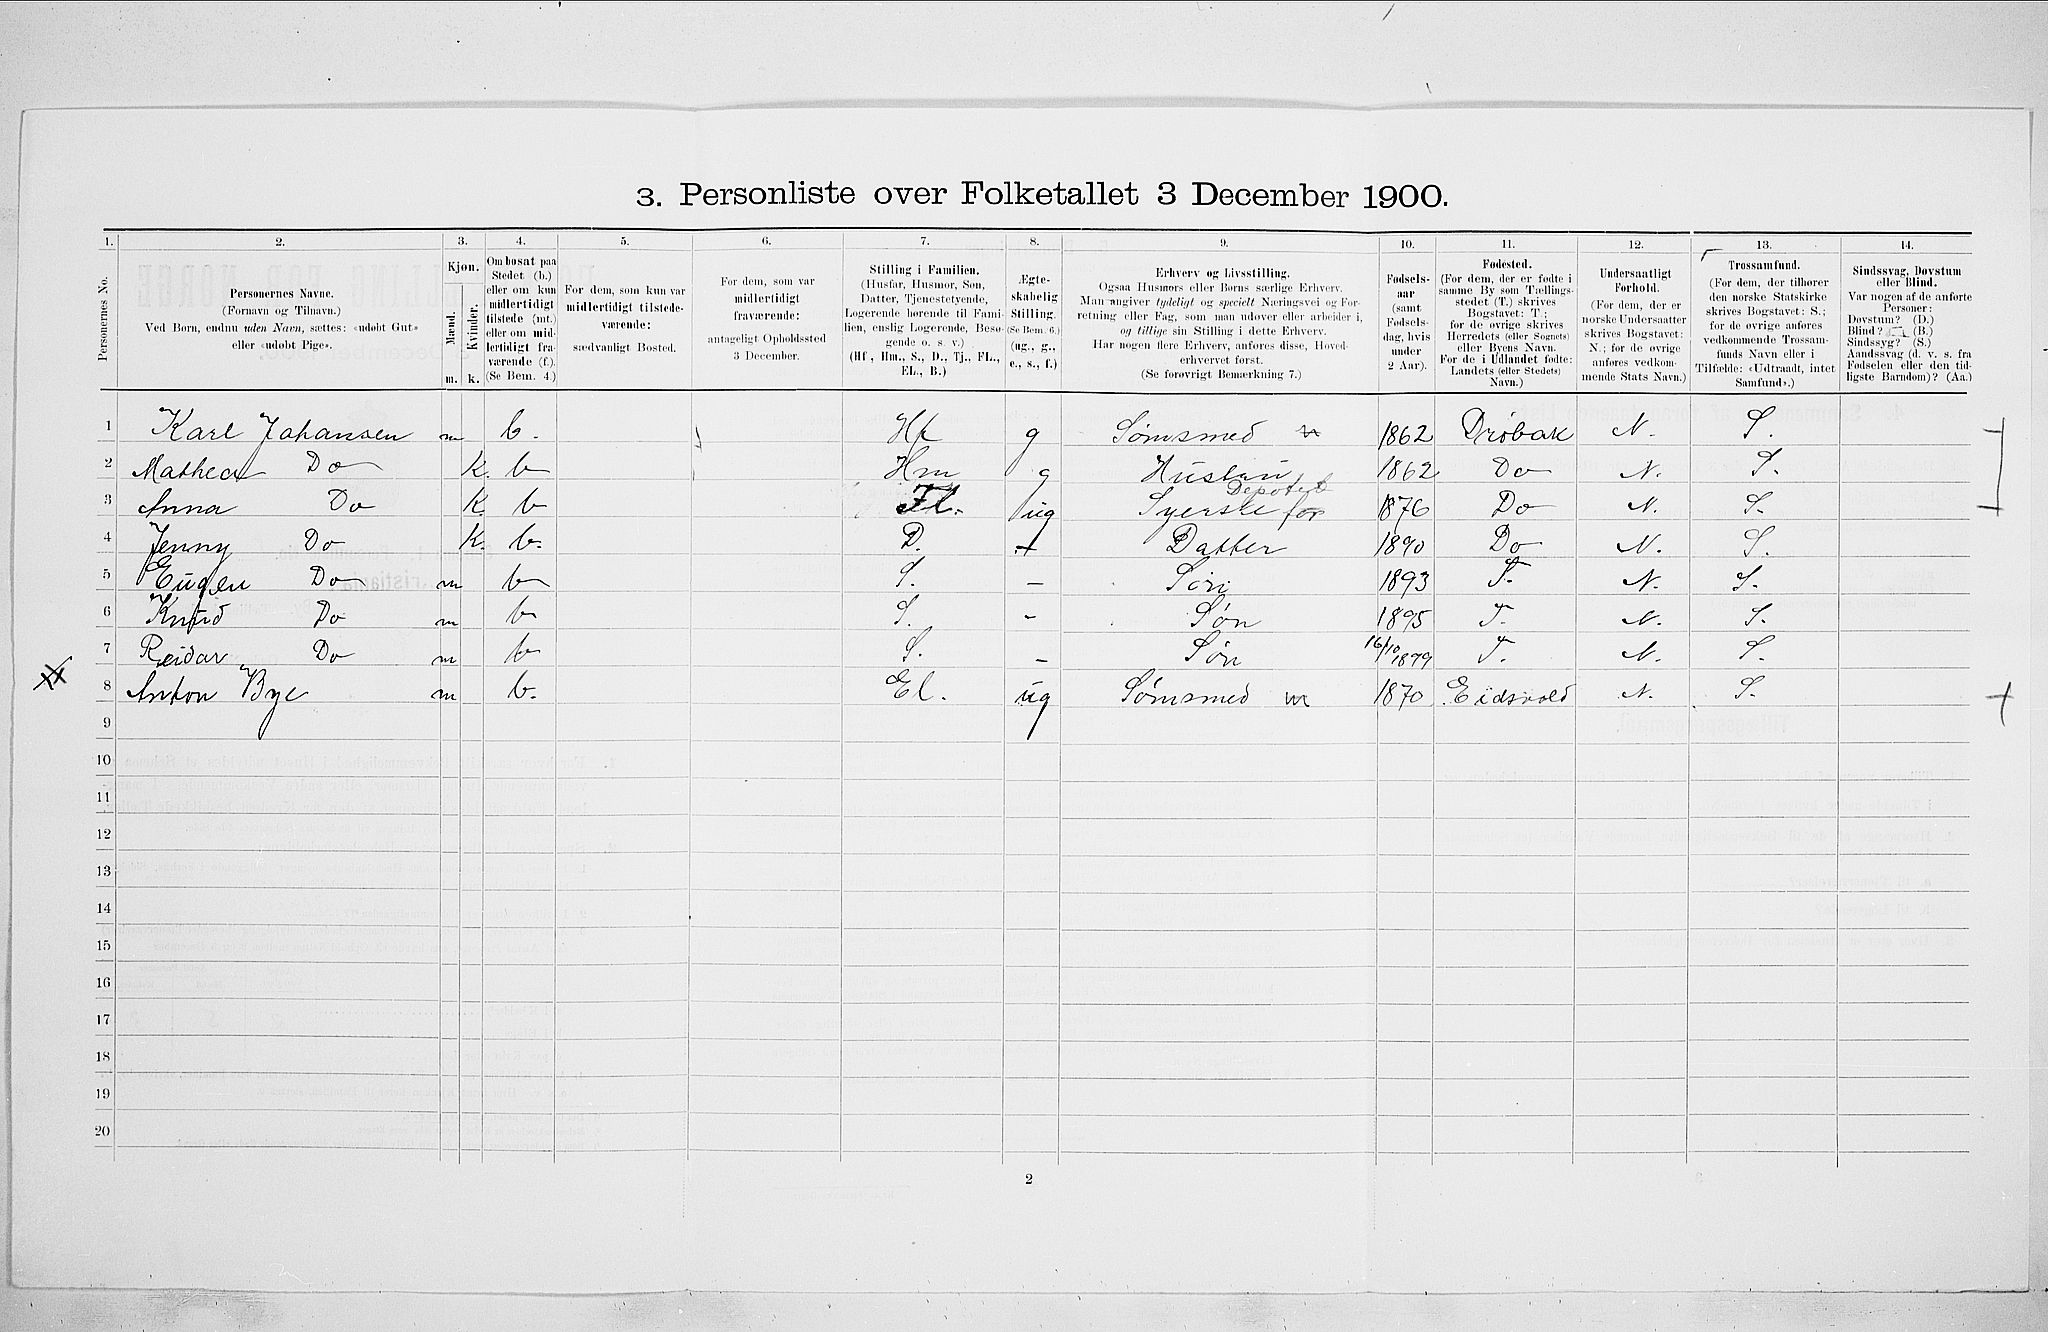 3. Personliste over Folketallet 3 December 1900.
1. 2. 3. 4. 5. 6. 7. 8. 9. 10. 11. 12. 13. 14.
Personernes No.
Personernes Navne.
(Fornavn og Tilnavn.)
Ved Børn, endnu uden Navn, sættes: «udøbt Gut»
eller «udøbt Pige».
Kjøn.
Mænd.
Kvinder.
m. k.
Om bosat paa
Stedet (b.)
eller om kun
midlertidigt
tilstede (mt.)
eller om mid-
lertidigt fra-
værende (f.).
(Se Bem. 4.)
For dem, som kun var
midlertidigt tilstede-
værende:
sædvanligt Bosted.
For dem, som var
midlertidigt
fraværende:
antageligt Opholdssted
3 December.
Stilling i Familien.
(Husfar, Husmor, Søn,
Datter, Tjenestetyende,
Logerende hørende til Fami-
lien, enslig Logerende, Besø-
gende o. s. v.)
(Hf., Hm., S., D., Tj., FL.,
EL., B.)
Ægte-
skabelig
Stilling.
(Se Bem. 6.)
(ug., g.,
e., s., f.)
Erhverv og Livsstilling.
Ogsaa Husmors eller Børns særlige Erhverv.
Man angiver tydeligt og specielt Næringsvei og For-
retning eller Fag, som man udøver eller arbeider i,
og tillige sin Stilling i dette Erhverv.
Har nogen flere Erhverv, anføres disse, Hoved-
erhvervet først.
(Se forøvrigt Bemærkning 7.)
Fødsels-
aar
(samt
Fødsels-
dag, hvis
under
2 Aar).
Fødested.
(For dem, der er fødte i
samme By som Tællings-
stedet (T.) skrives
Bogstavet: T.;
for de øvrige skrives
Herredets (eller Sognets)
eller Byens Navn.
For de i Udlandet fødte:
Landets (eller Stedets)
Navn.)
Undersaatligt
Forhold.
(For dem, der er
norske Undersaatter
skrives Bogstavet:
N.; for de øvrige
anføres vedkom-
mende Stats Navn.)
Trossamfund.
(For dem, der tilhører
den norske Statskirke
skrives Bogstavet: S.;
for de øvrige anføres
vedkommende Trossam-
funds Navn eller i
Tilfælde: «Udtraadt, intet
Samfund».)
Sindssvag, Døvstum
eller Blind.
Var nogen af de anførte
Personer:
Døvstum? (D.)
Blind? (B.)
Sindssyg? (S.)
Aandssvag (d. v. s. fra
Fødselen eller den tid-
ligste Barndom)? (Aa.)
1 Karl Johansen m b. Hf g Sømsmed 1862 Drøbak N. S.
2 Mathea Do K. b Hm g Hustru 1862 Do N. S.
3 Anna Do K. b Fl. ug Syerske for Depotet 1876 Do N. S.
4 Jenny Do K. b. D. Datter 1890 Do N. S.
5 Eugen Do m b S. – Søn 1893 T. N. S.
6 Knud Do m b S. – Søn 1895 T. N. S.
7 Reidar Do m b S. – Søn 16/10 1899 T. N. S.
8 Anton Bye m b. El. ug Sømsmed m 1870 Eidsvold N. S.
9
10
11
12
13
14
15
16
17
18
19
20
2